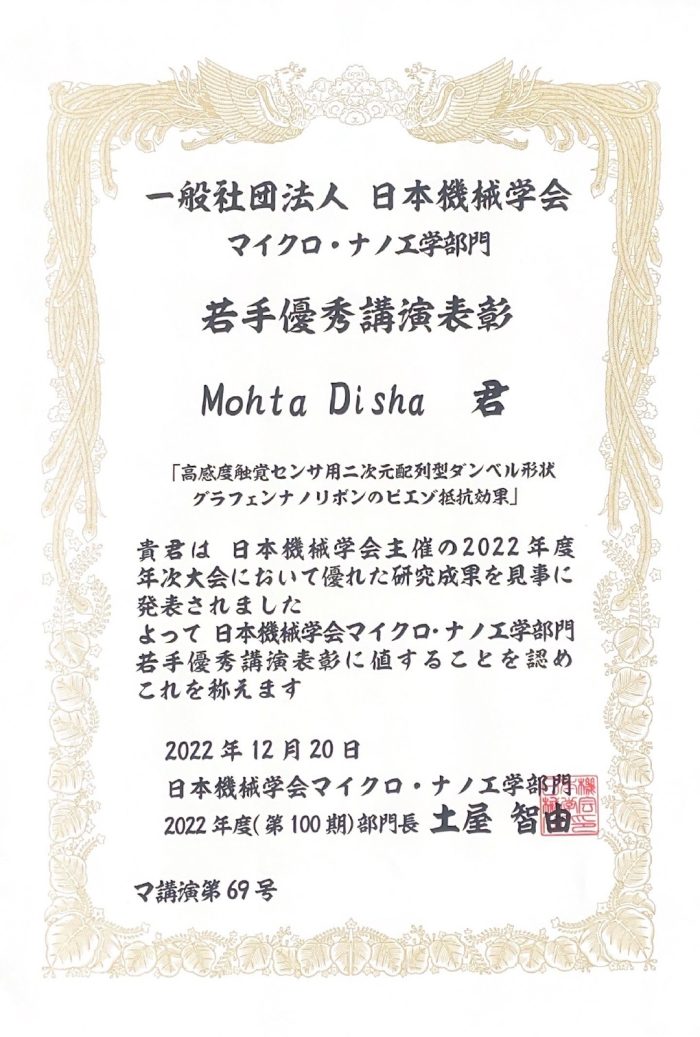 一般社団法人 日本機械学会
マイクロ・ナノ工学部門
若手優秀講演表彰
Mohta Disha 君
「高感度触覚センサ用二次元配列型ダンベル形状
グラフェンナノリボンのピエゾ抵抗効果」
貴君は 日本機械学会主催の2022年度
年次大会において優れた研究成果を見事に
発表されました
よって 日本機械学会マイクロ・ナノ工学部門
若手優秀講演表彰に値することを認め
これを称えます
2022年12月20日
日本機械学会マイクロ・ナノ工学部門
2022年度(第100期)部門長 土屋 智由
マ講演第69号